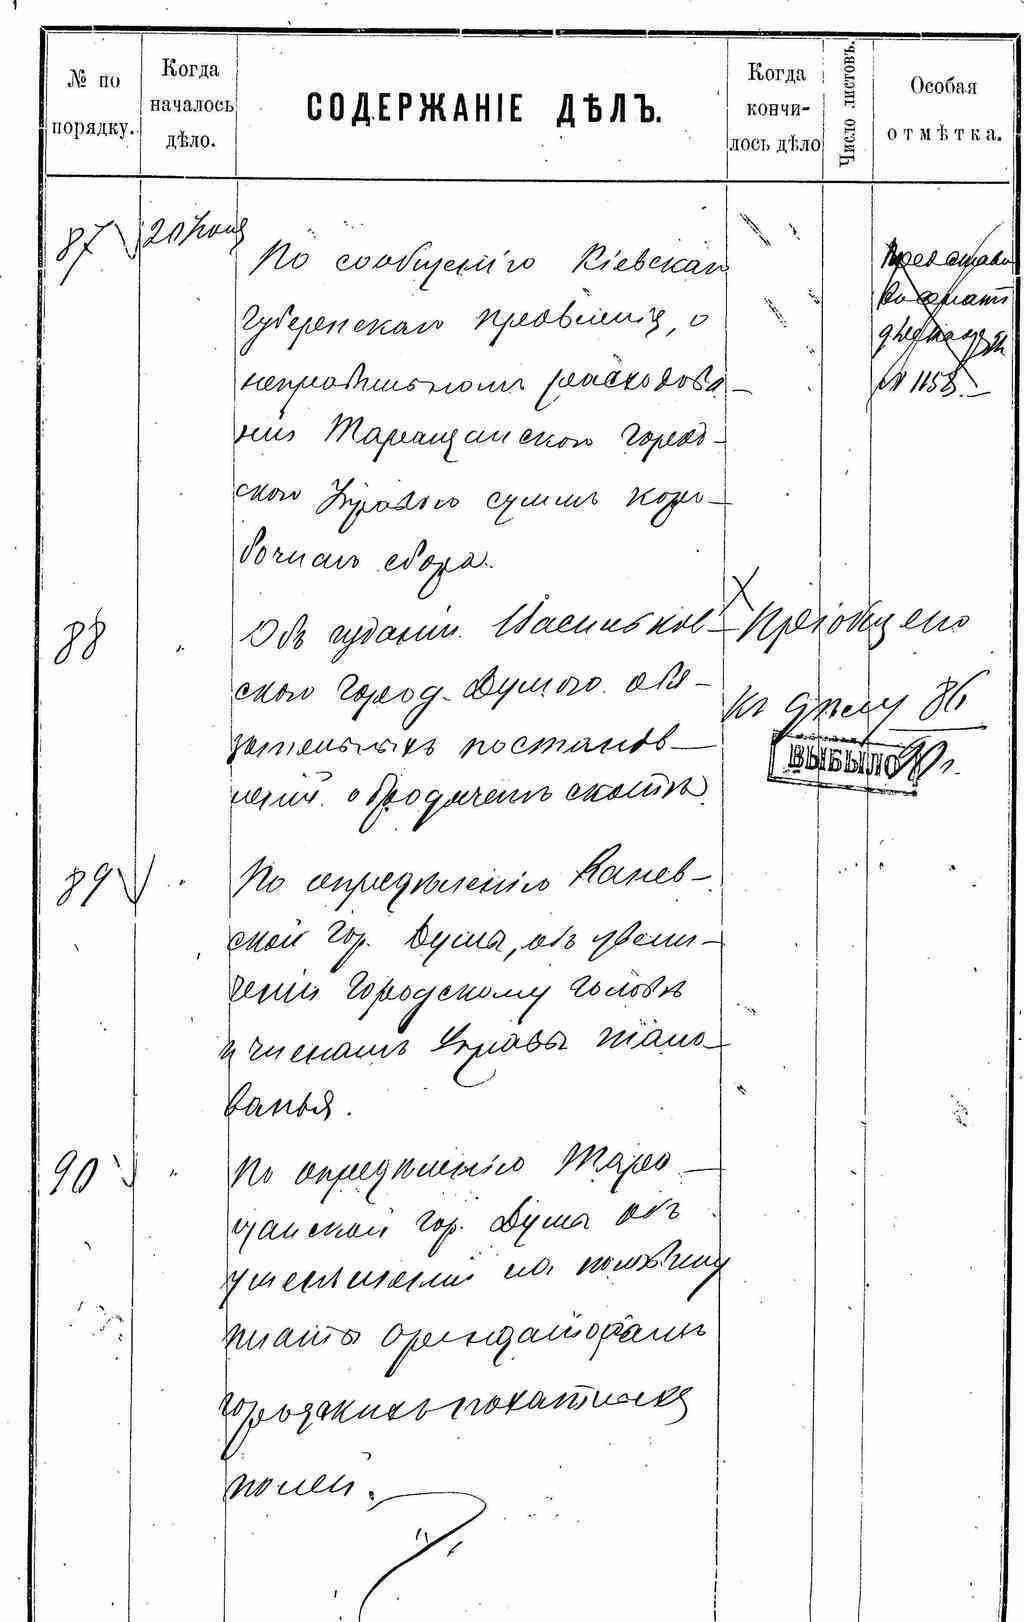 № по порядку.
Когда началось дѣло.
СОДЕРЖАНІЕ ДѢЛЪ.
Когда кончи-лось дѣло
Число листовъ.
Особая отмѣтка.
87
20 Іюня
По сообщенію Кіевскаго
Губернскаго правленія, о
неправильномъ расходова-
ніи Таращанскою город-
скою Управою суммъ коро-
бочнаго сбора.
№ 1158.
88
"
Объ изданіи Васильков-
скою Город. Думою обя-
зательныхъ постанов-
леній о бродячемъ скотѣ.
Пріобщено
къ дѣлу 86
90 г.
ВЫБЫЛО
89
"
По опредѣленію Канев-
ской Гор. Думы, объ увели-
ченіи Городскому Головѣ
и членамъ Управы жало-
ванья.
90
"
По опредѣленію Тара-
щанской Гор. Думы объ
уменьшеніи на половину
платы арендаторамъ
городскихъ
полей.